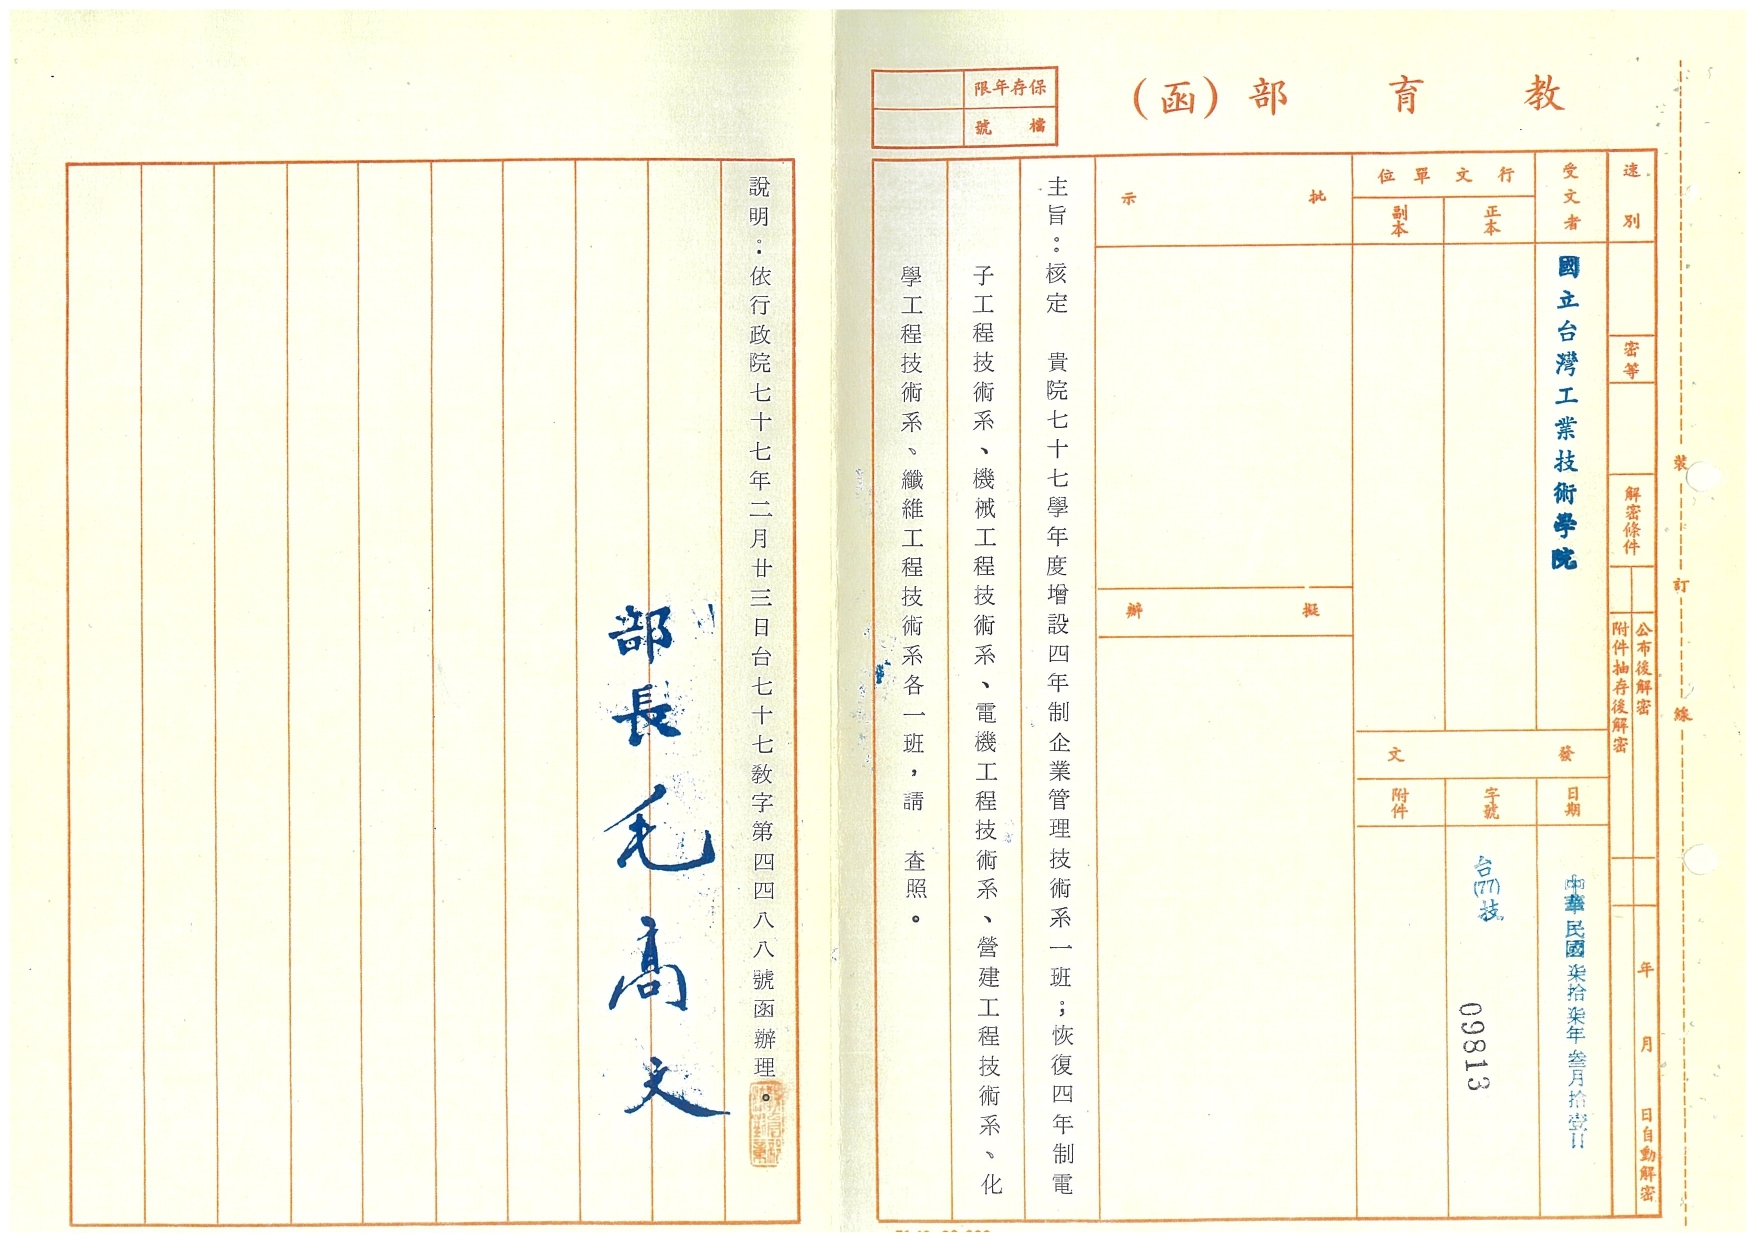 教育部(函)
保存年限
檔號
速別
密等
解密條件
公布後解密
附件抽存後解密
年月日自動解密
裝
訂
線
受文者
國立台灣工業技術學院
行文單位
正本
副本
發文
日期
中華民國柒拾柒年叁月拾壹日
字號
台(77)技
09813
附件
批示
擬辦
主旨：核定 貴院七十七學年度增設四年制企業管理技術系一班；恢復四年制電
子工程技術系、機械工程技術系、電機工程技術系、營建工程技術系、化
學工程技術系、纖維工程技術系各一班，請 查照。
說明：依行政院七十七年二月廿三日台七十七教字第四四八八號函辦理。
部長毛高文